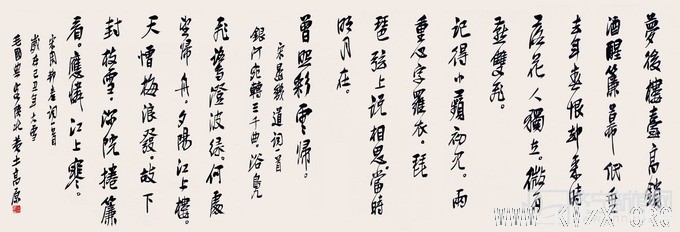 夢後樓臺高鎖
酒醒簾幕低垂
去年春恨却來時
落花人獨立。微雨
燕雙飛。
記得小蘋初見。兩
重心字羅衣。琵
琶弦上說相思。當時
明月在。
曾照彩雲歸。
宋晏幾道詞一首
銀河宛轉三千曲。浴鳧
飛鷺澄波緑。何處
是歸舟。夕陽江上樓。
天憎梅浪發。故下
封枝雪。深院捲簾
看。應憐江上寒。
宋周邦彦詞一首
歲在己丑年大雪
陝北黄土高原